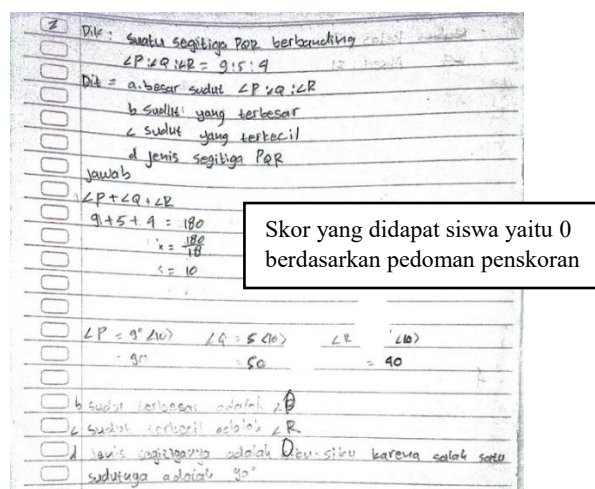 2
Dik : suatu segitiga PQR berbanding
∠P:∠Q:∠R = 9:5:4
Dit = a. besar sudut ∠P:∠Q:∠R
b sudut yang terbesar
c sudut yang terkecil
d jenis segitiga PQR
Jawab
∠P+∠Q+∠R
9+5+4 = 180
x = 180/18
= 10
Skor yang didapat siswa yaitu 0
berdasarkan pedoman penskoran
∠P = 9° (10) ∠Q = 5 (10) ∠R (10)
= 50 = 40
b sudut terbesar adalah ∠
c sudut terkecil adalah ∠R
d jenis adalah siku-siku karena salah satu
adalah 90°